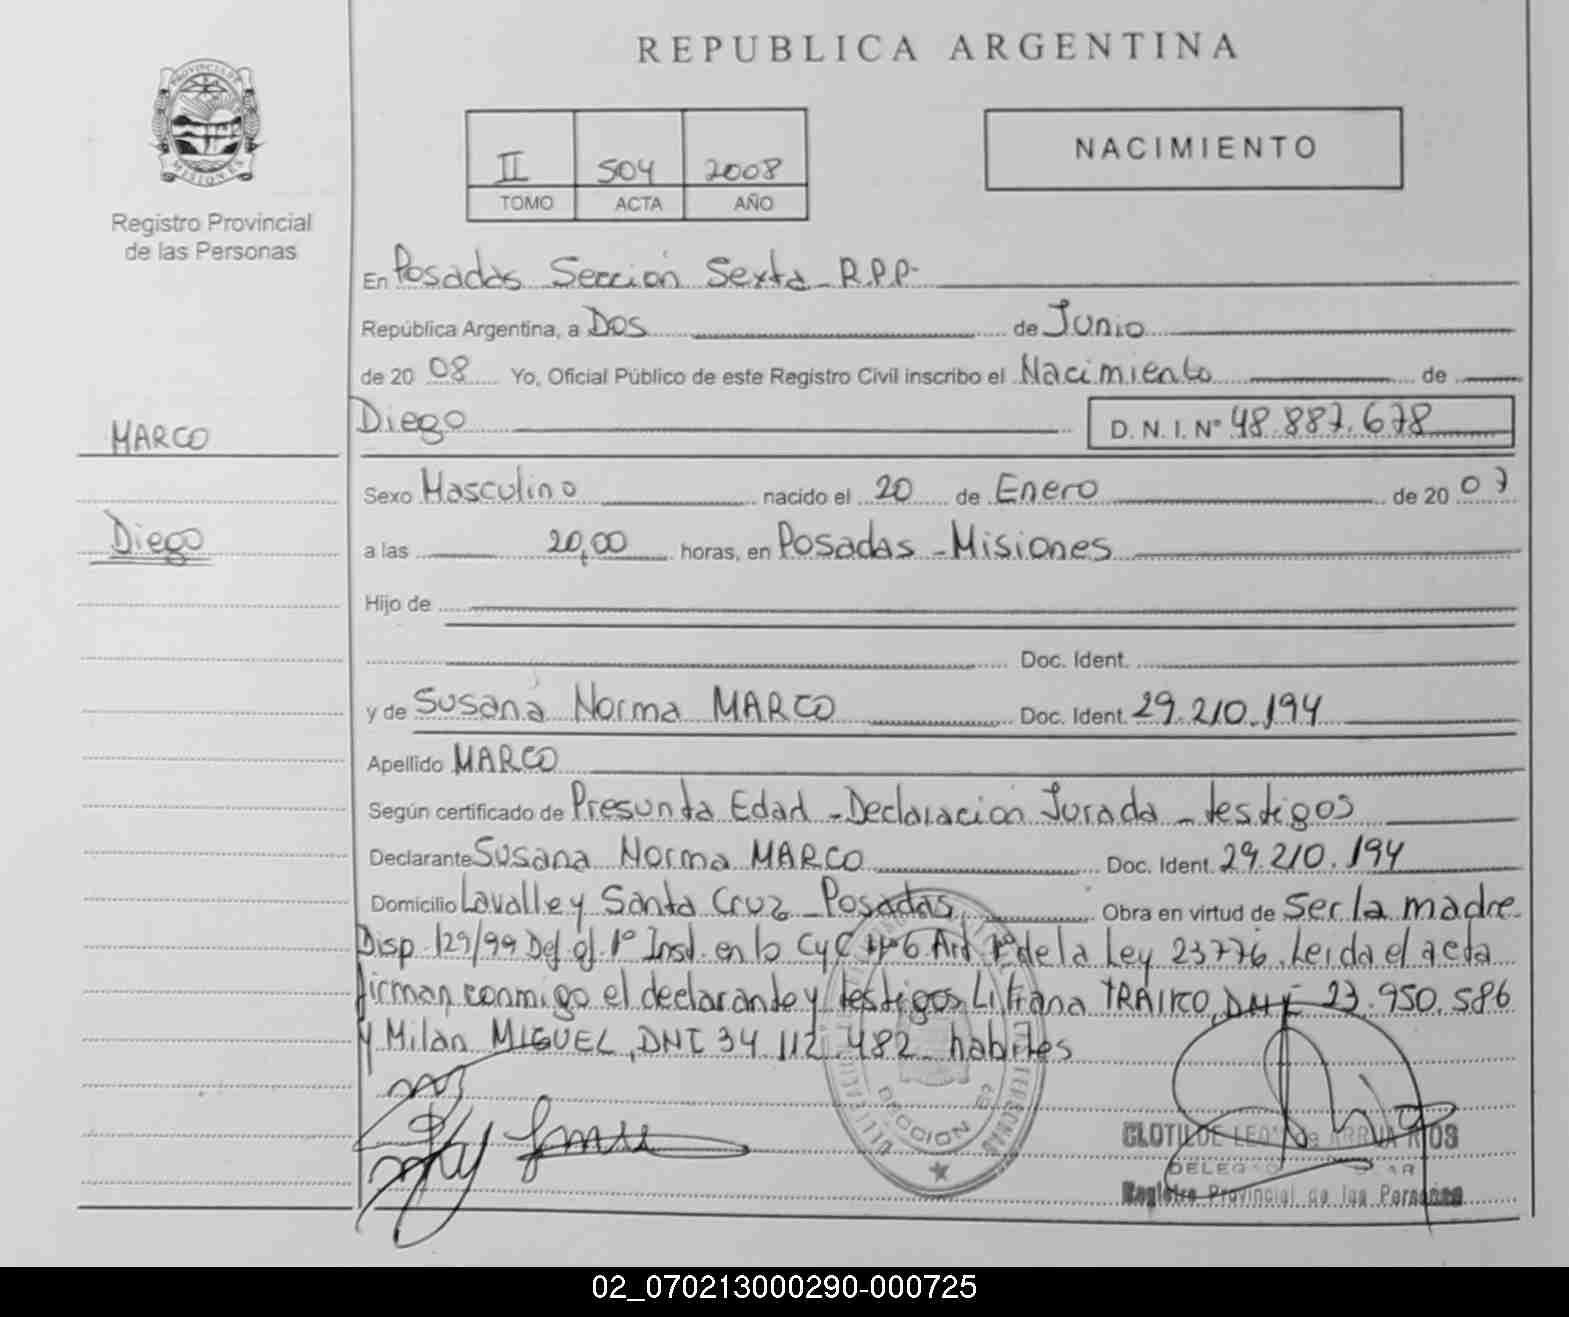 REPUBLICA ARGENTINA
PROVINCIA DE
MISIONES
Registro Provincial
de las Personas
II 504 2008
TOMO ACTA AÑO
NACIMIENTO
En Posadas Sección Sexta - R.P.P.-
República Argentina, a Dos de Junio
de 20 08 Yo, Oficial Público de este Registro Civil inscribo el Nacimiento de
MARCO
Diego
Diego
D. N. I. N° 48.887.678
Sexo Masculino nacido el 20 de Enero de 20 07
a las 20,00 horas, en Posadas - Misiones
Hijo de
Doc. Ident.
y de Susana Norma MARCO Doc. Ident. 29.210.194
Apellido MARCO
Según certificado de Presunta Edad - Declaración Jurada - testigos
Declarante Susana Norma MARCO Doc. Ident. 29.210.194
Domicilio Lavalle y Santa Cruz - Posadas Obra en virtud de Ser la madre
Disp. 129/99 Def. of. 1° Inst. en lo C y C N°6 Art 1° de la Ley 23776. Leida el acta
firman conmigo el declarante y testigos Liliana TRAICO, DNI 23.950.586
y Milan MIGUEL, DNI 34.112.482 habiles
SECCION 6ª
CLOTILDE
Registro Provincial de las Personas
02_070213000290-000725